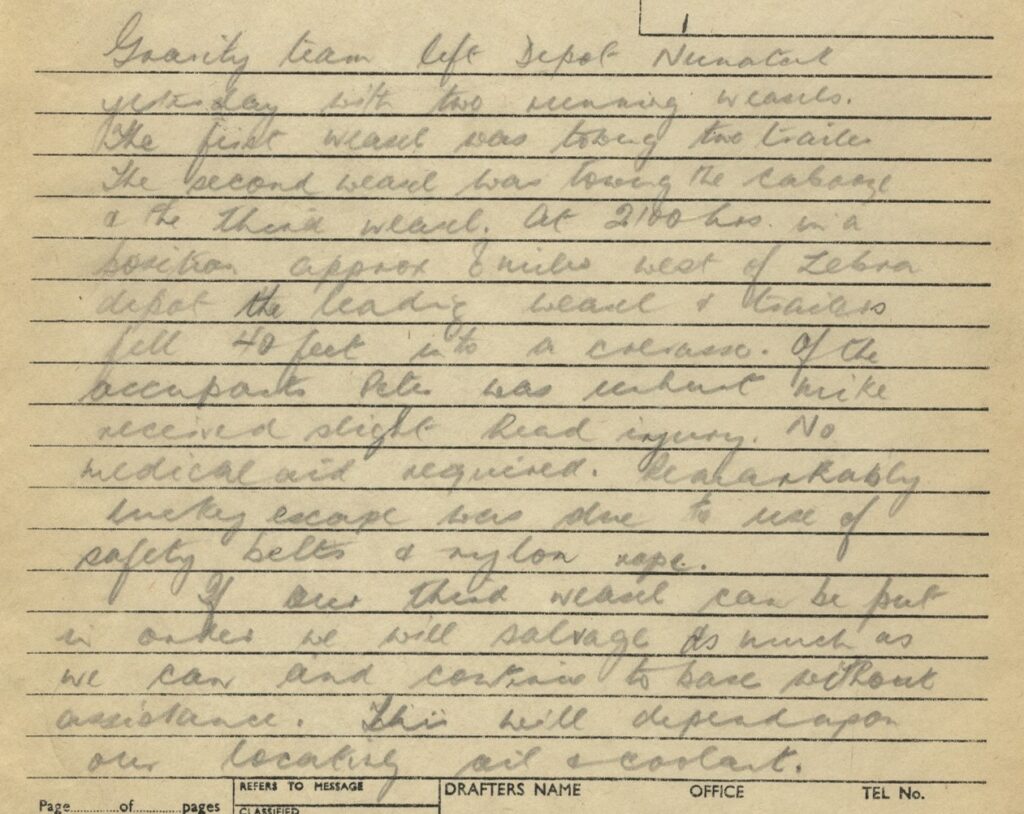 1
Gravity team left Depot Nunatak
yesterday with two running weasels.
The first weasel was towing two trailers
The second weasel was towing the caboose
& the third weasel. At 2100 hrs. in a
position approx 8 miles west of Zebra
depot the leading weasel & trailers
fell 40 feet into a crevasse. Of the
occupants Peter was unhurt Mike
received slight head injury. No
medical aid required. Remarkably
lucky escape was due to use of
safety belts & nylon rope.
If our third weasel can be put
in order we will salvage as much as
we can and continue to base without
assistance. This will depend upon
our locating oil & coolant.
Page............of............pages
REFERS TO MESSAGE
CLASSIFIED
DRAFTERS NAME
OFFICE
TEL No.